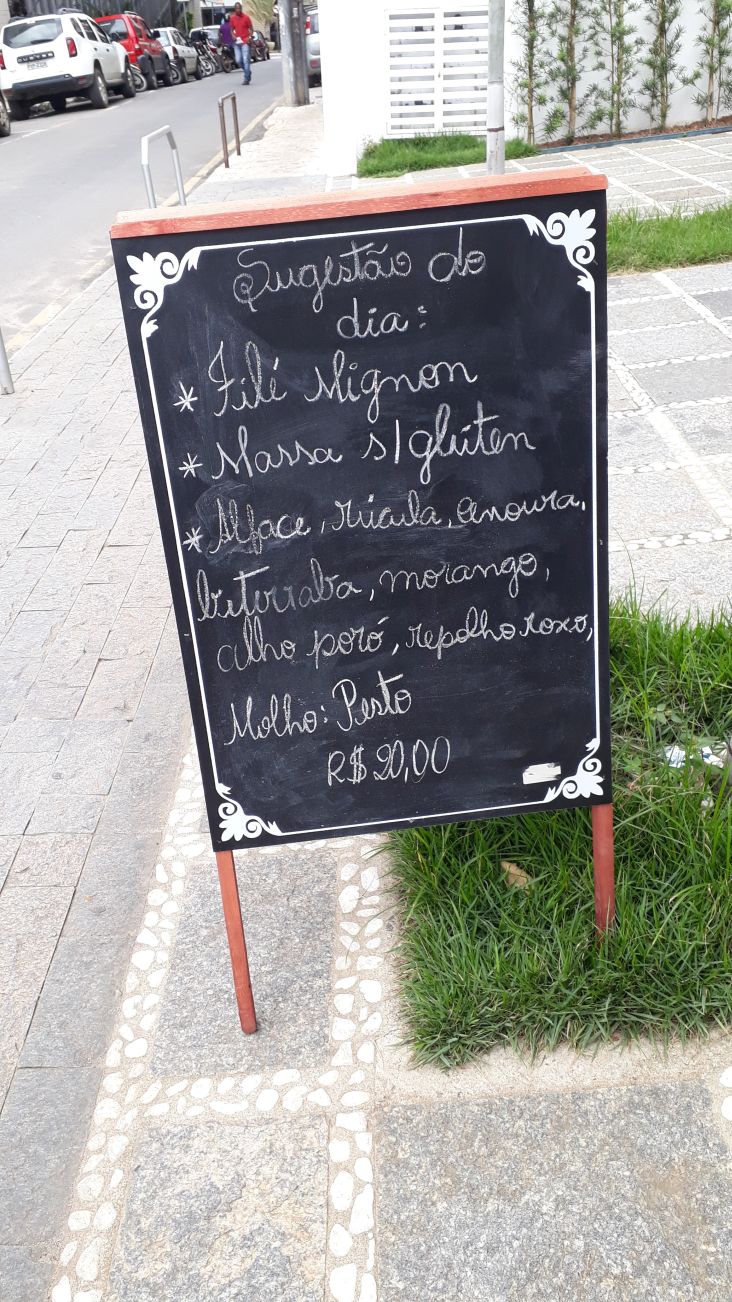 DUSTER
Sugestão do
dia:
* Filé Mignon
* Massa s/glúten
* Alface, rúcula, cenoura,
beterraba, morango,
alho poró, repolho roxo,
Molho: Pesto
R$ 20,00